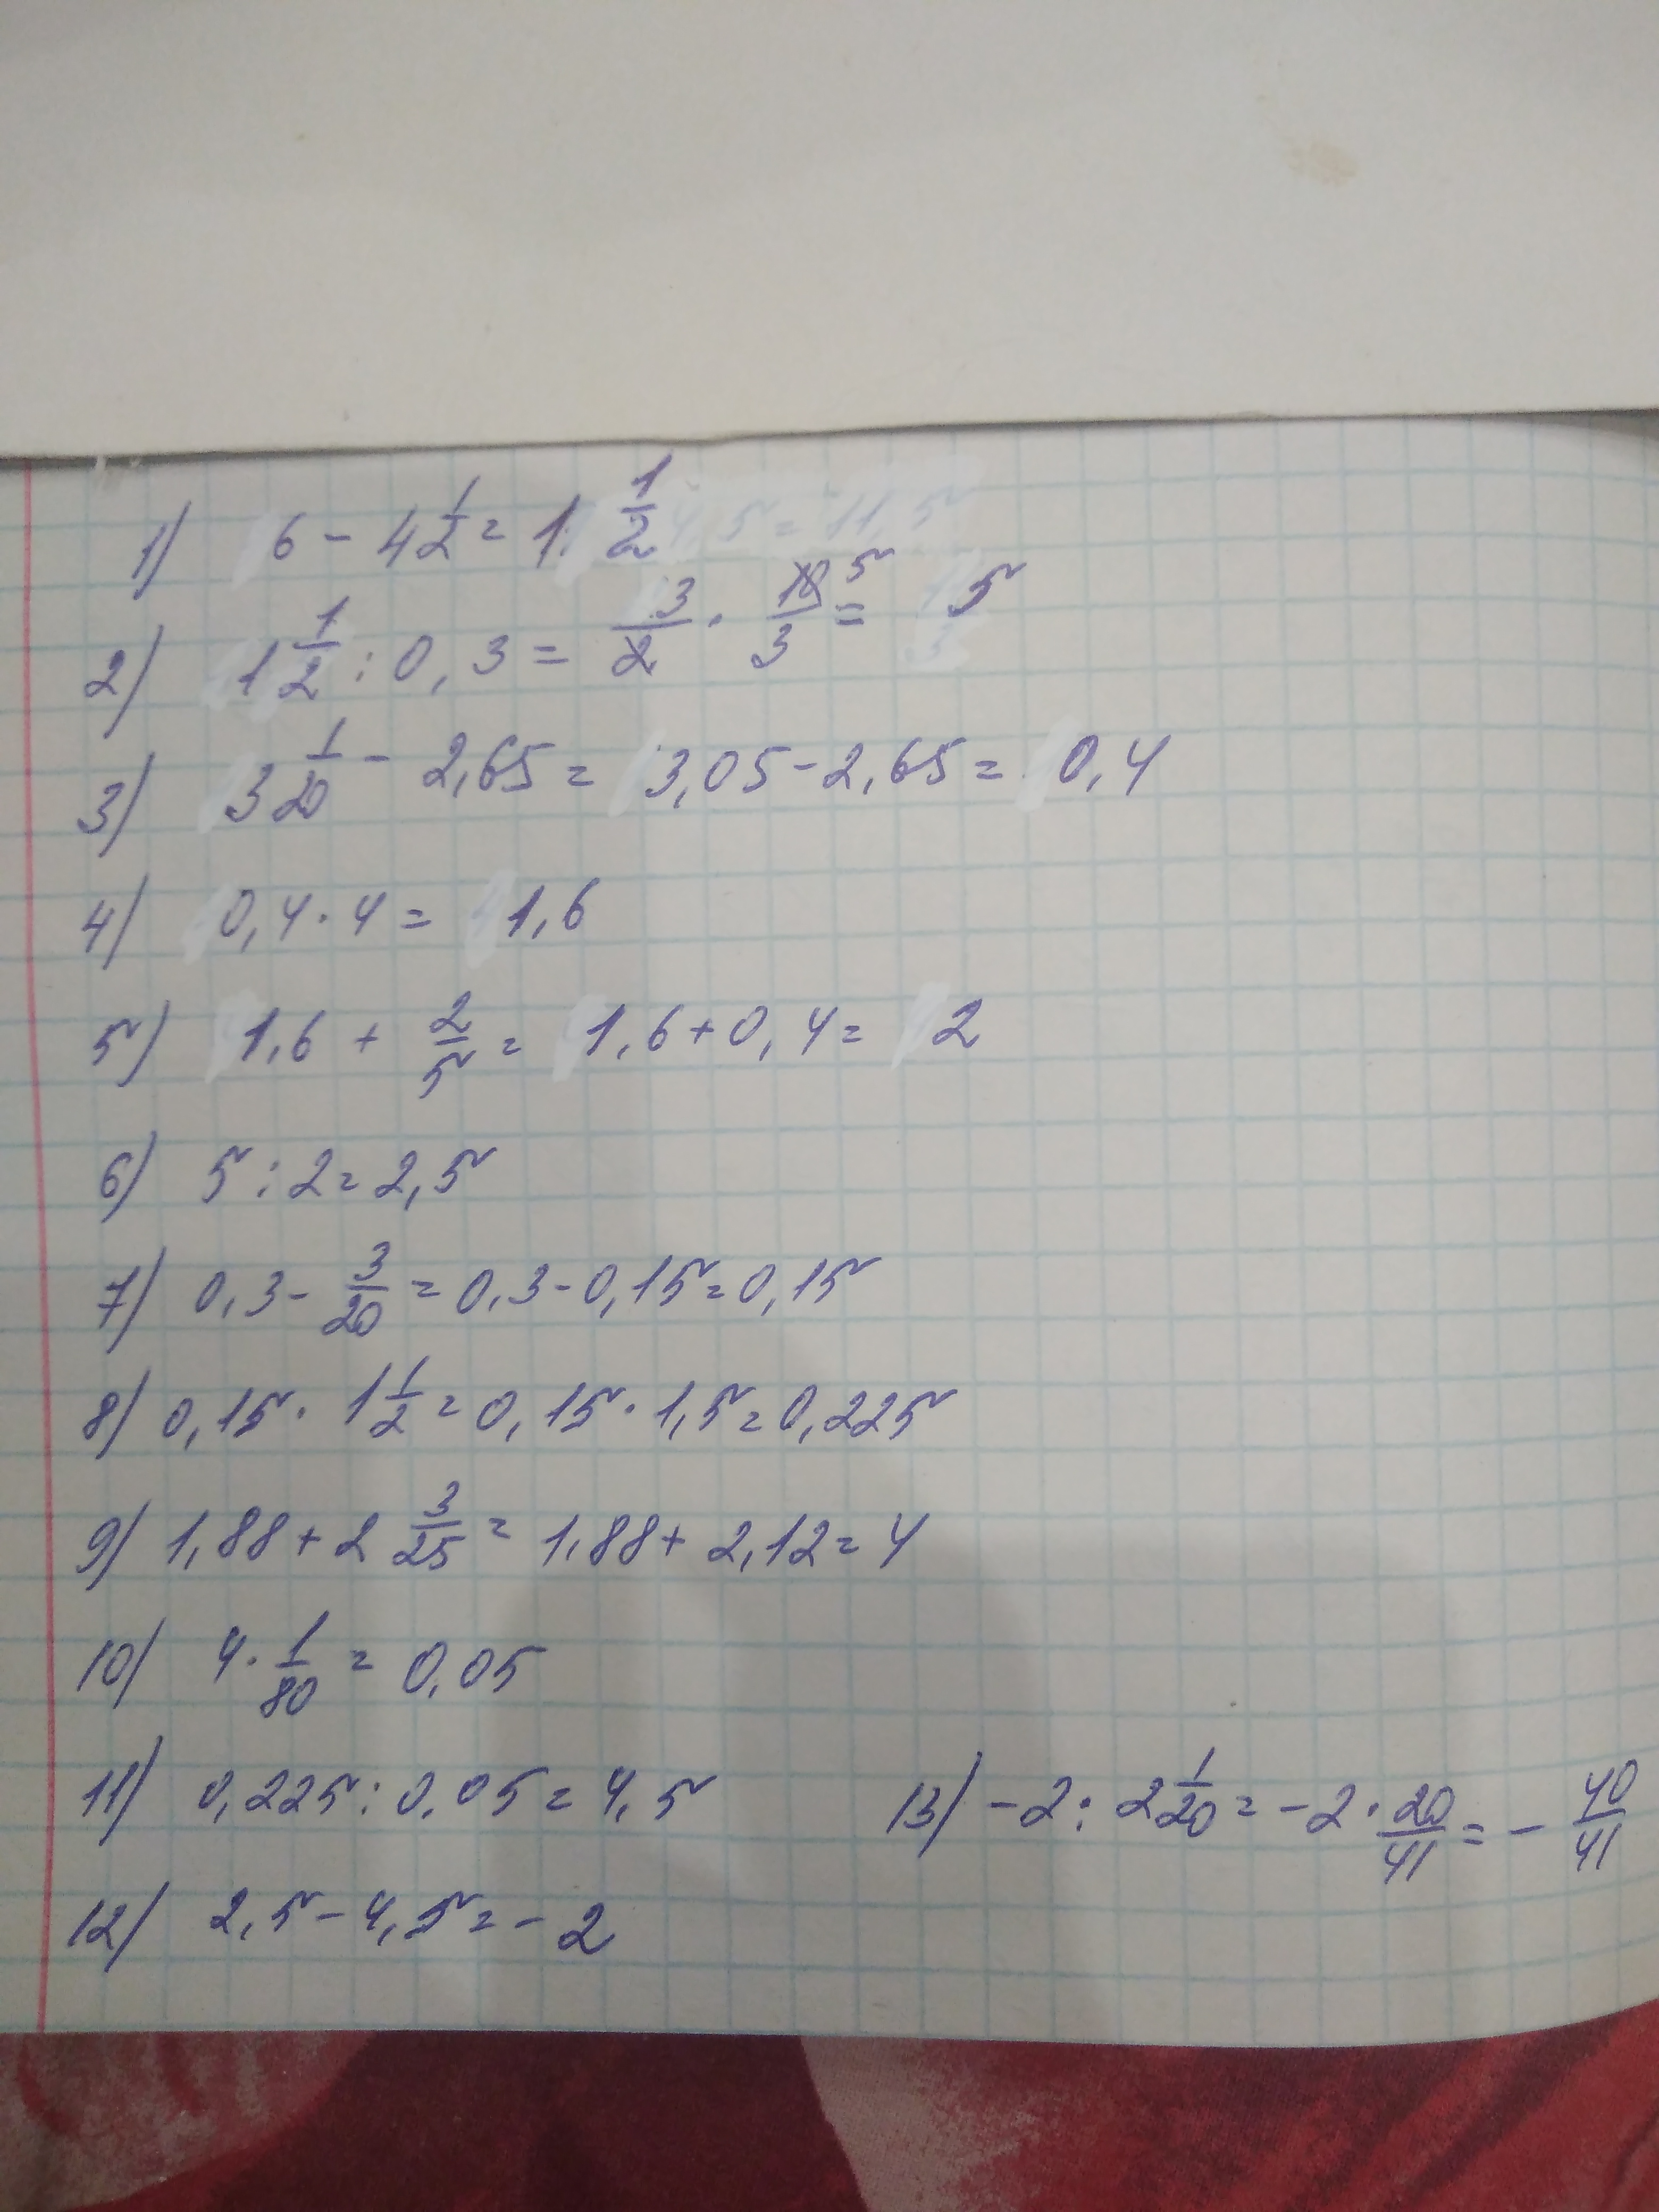 1) 6 - 4 1/2 = 1 1/2
2) 1 1/2 : 0,3 = 3/2 · 10/3 5 = 5
3) 3 1/20 - 2,65 = 3,05 - 2,65 = 0,4
4) 0,4 · 4 = 1,6
5) 1,6 + 2/5 = 1,6 + 0,4 = 2
6) 5 : 2 = 2,5
7) 0,3 - 3/20 = 0,3 - 0,15 = 0,15
8) 0,15 · 1 1/2 = 0,15 · 1,5 = 0,225
9) 1,88 + 2 3/25 = 1,88 + 2,12 = 4
10) 4 · 1/80 = 0,05
11) 0,225 : 0,05 = 4,5
12) 2,5 - 4,5 = - 2
13) - 2 : 2 1/20 = - 2 · 20/41 = - 40/41